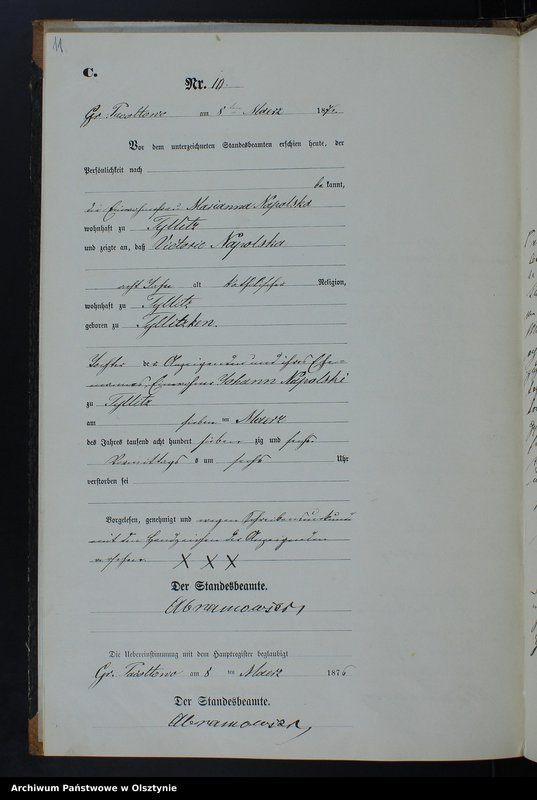 11.
C.
Nr. 10.
Gr. am 8ten Maerz 1876.
Vor dem unterzeichneten Standesbeamten erschien heute, der
Persönlichkeit nach
bekannt,
die Einwohnerfrau Marianna Napolska
wohnhaft zu Tyllitz
und zeigte an, daß Victorie Napolska
acht Jahre alt katholischer Religion,
wohnhaft zu Tyllitz
geboren zu Tyllitzken.
Tochter der Anzeigenden und ihres Ehe-
mannes, Johann Napolski
zu Tyllitz
am sieben ten Maerz
des Jahres tausend acht hundert sieben zig und sechs
Vormittags um sechs Uhr
verstorben sei
Vorgelesen, genehmigt und wegen Schreibensunkunde
mit den Handzeichen der Anzeigenden
versehen. X X X
Der Standesbeamte.
Abramowski
Die Uebereinstimmung mit dem Hauptregister beglaubigt
Gr. am 8 ten Maerz 1876
Der Standesbeamte.
Abramowski
Archiwum Państwowe w Olsztynie